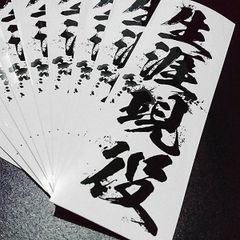 生涯現役